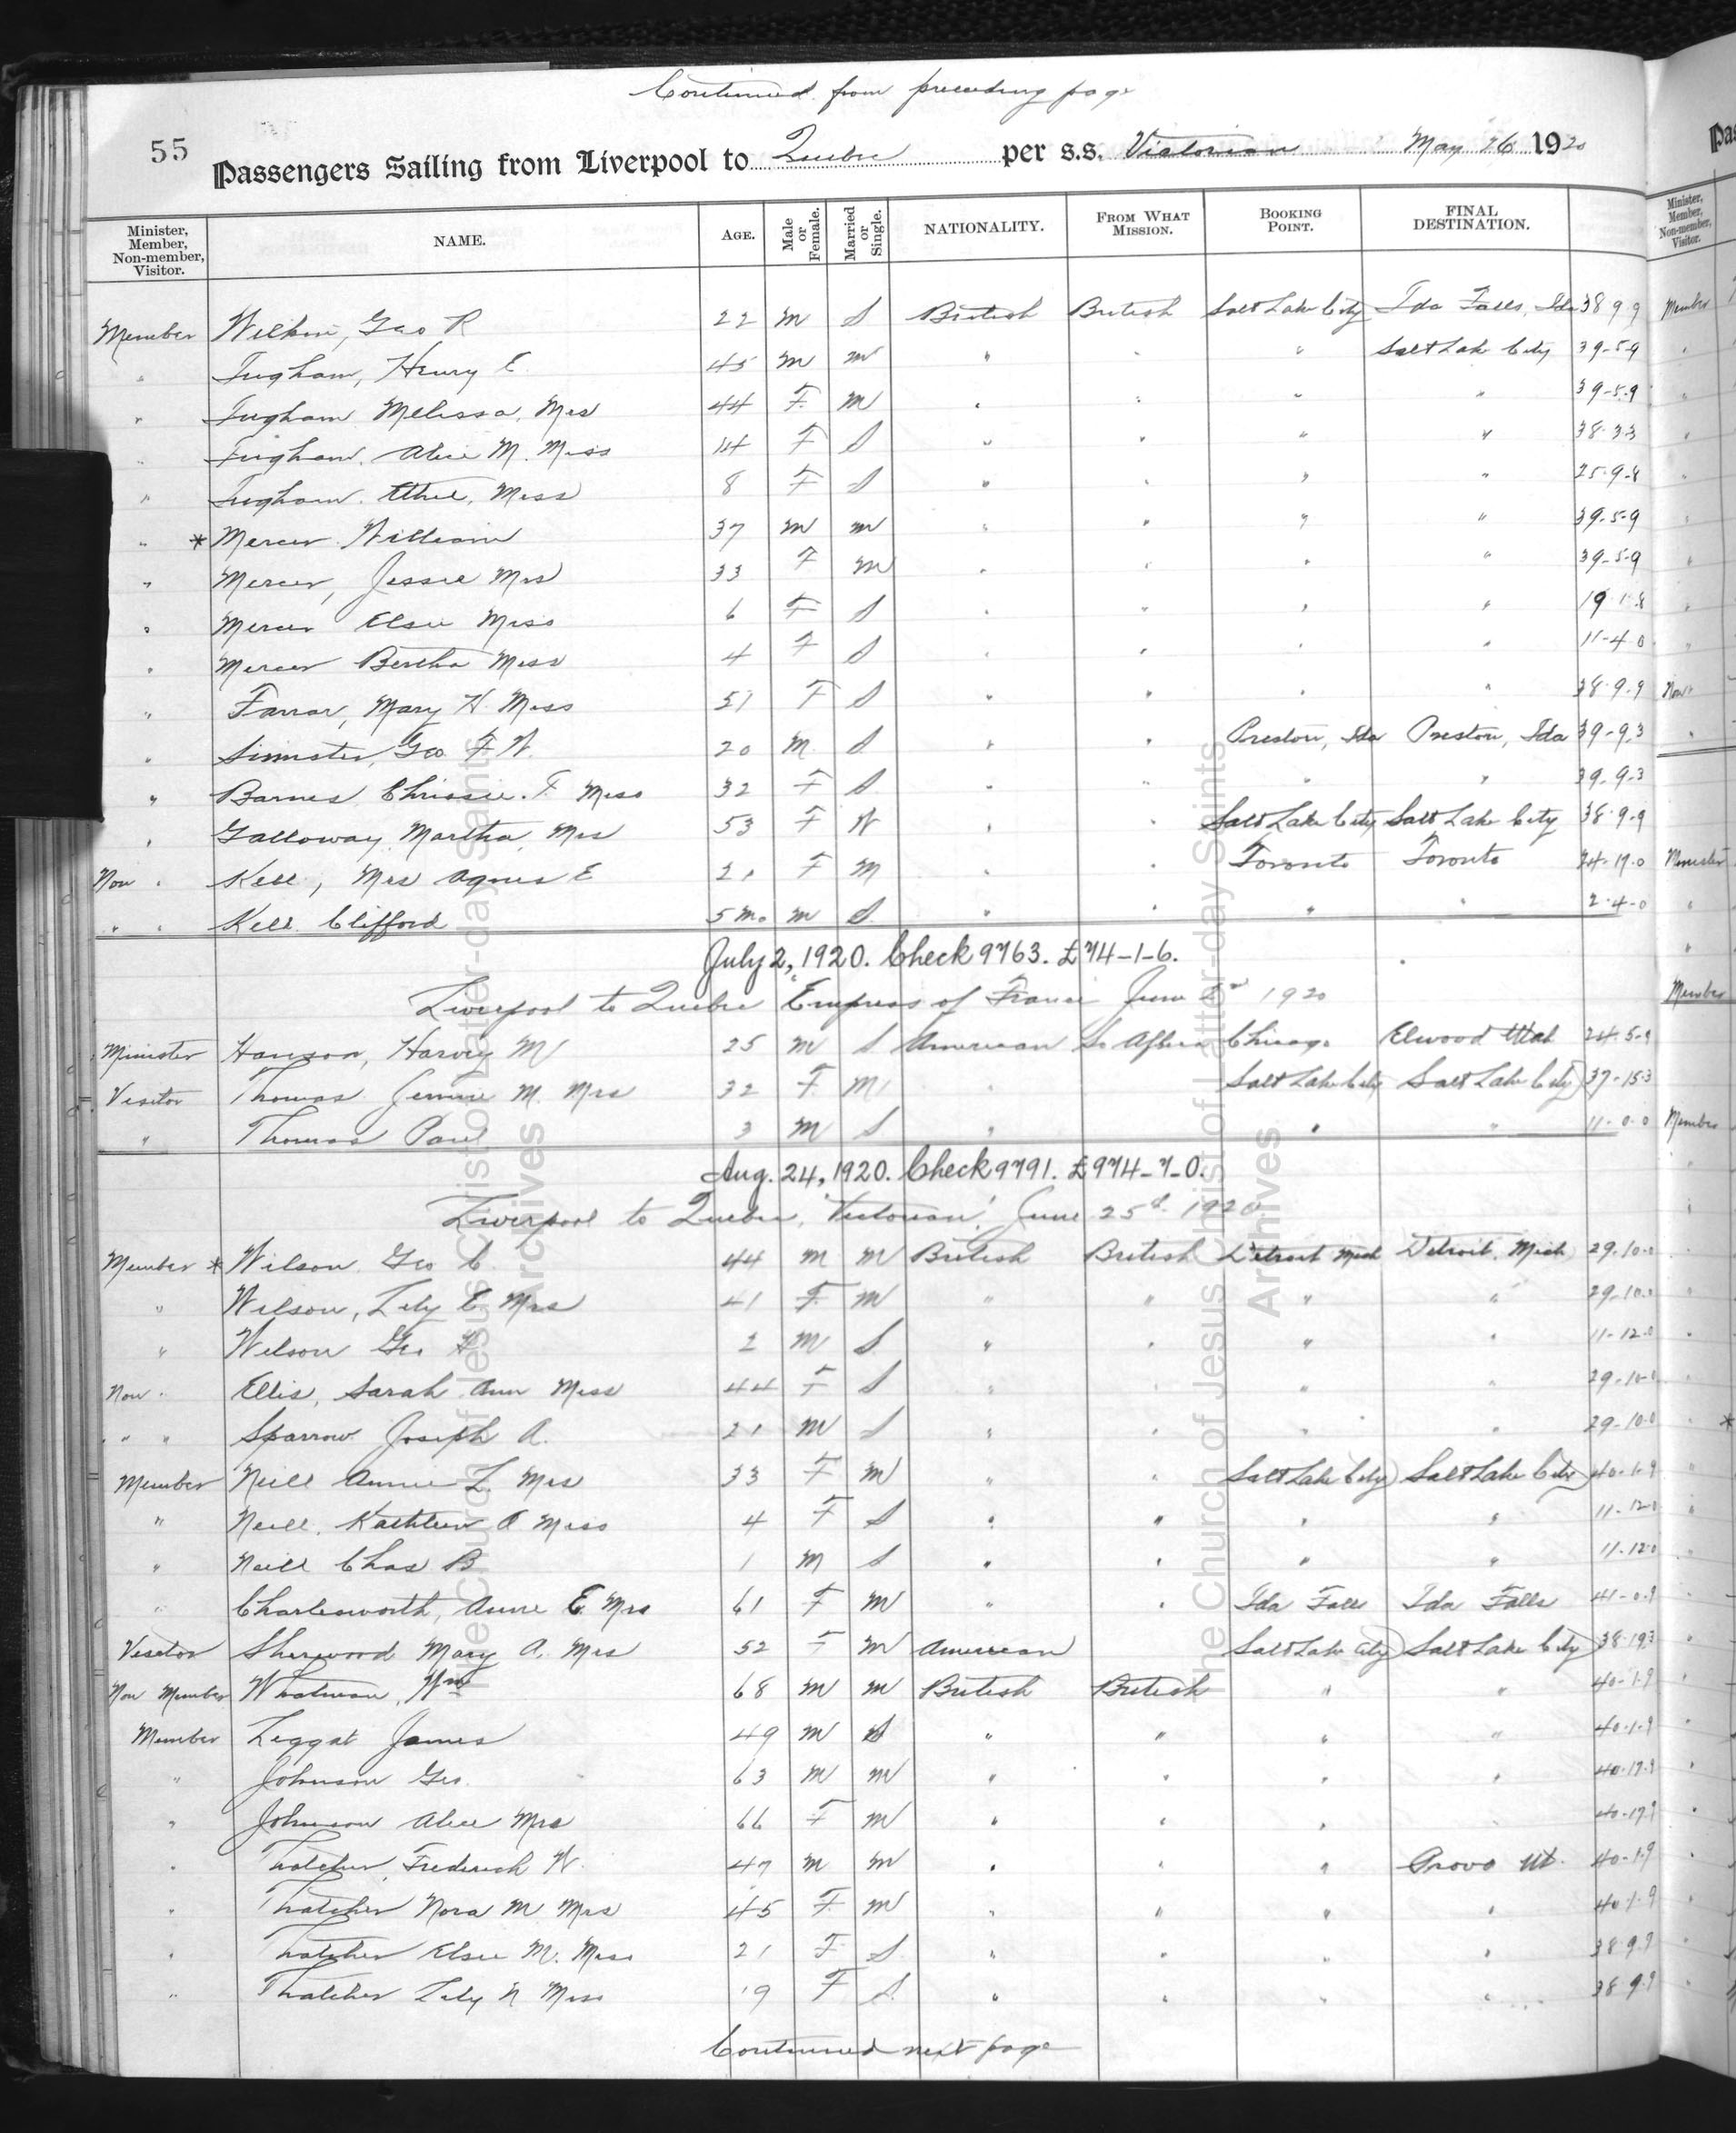 Continued from preceding page
55
Passengers Sailing from Liverpool to Quebec per s.s. Victorian May 26 1920
Minister, Member, Non-member, Visitor. NAME. AGE. Male or Female. Married or Single. NATIONALITY. FROM WHAT MISSION. BOOKING POINT. FINAL DESTINATION.
Member Wilkin, Geo R 22 M S British British Salt Lake City Ida Falls, Ida 38 9 9
" Ingham, Henry E. 45 M M " " " Salt Lake City 39-5-9
" Ingham Melissa, Mrs 44 F M " " " " 39-5-9
" Ingham, Alice M. Miss 14 F S " " " " 38-3-3
" Ingham, Ethel, Miss 8 F S " " " " 25-9-8
" * Mercer William 37 M M " " " " 39-5-9
" Mercer, Jessie Mrs 33 F M " " " " 39-5-9
" Mercer Elsie Miss 6 F S " " " " 19-1-8
" Mercer Bertha Miss 4 F S " " " " 11-4-0
" Farrar, Mary H. Miss 51 F S " " " " 38-9-9
" Simister, Geo F W. 20 M S " " Preston, Ida Preston, Ida 39-9-3
" Barnes Chrissie. F Miss 32 F S " " " " 39-9-3
" Galloway, Martha, Mrs 53 F W " " Salt Lake City Salt Lake City 38-9-9
Non " Kell, Mrs Agnes E 21 F M " " Toronto Toronto 24-17-0
" " Kell Clifford 5 mo M S " " " " 2-4-0
July 2, 1920. Check 9763. £74-1-6.
Liverpool to Quebec "Empress of France June 1920
Minister Hanson, Harvey M 25 M S American So Africa Chicago Elwood Utah 24-5-9
Visitor Thomas Jennie M. Mrs 32 F M " Salt Lake City Salt Lake City 37-15-3
" Thomas Paul 3 M S " " " 11-0-0
Aug. 24, 1920. Check 9791. £974-7-0.
Liverpool to Quebec, "Victorian" June 25th 1920
Member * Wilson Geo C. 44 M M British British Detroit Mich Detroit. Mich 29-10-0
" Wilson, Lily E Mrs 41 F M " " " " 29-10-0
" Wilson Geo H 2 M S " " " " 11-12-0
Non " Ellis, Sarah Ann Miss 44 F S " " " " 29-10-0
" " Sparrow Joseph A. 21 M S " " " " 29-10-0
Member Neill Annie L. Mrs 33 F M " " Salt Lake City Salt Lake City 40-1-9
" Neill, Kathleen A Miss 4 F S " " " " 11-12-0
" Neill Chas B 1 M S " " " " 11-12-0
" Charlesworth, Anne E. Mrs 61 F M " " Ida Falls Ida Falls 41-0-9
Visitor Sherwood Mary A. Mrs 52 F M American Salt Lake City Salt Lake City 38-19-3
Non Member Whatman, Wm 68 M M British British " " 40-1-9
Member Leggat James 49 M S " " " " 40-1-9
" Johnson Geo. 63 M M " " " " 40-17-9
" Johnson Alice Mrs 66 F M " " " " 40-17-9
" Thatcher, Frederick W. 47 M M " " " Provo Ut. 40-1-9
" Thatcher Nora M Mrs 45 F M " " " " 40-1-9
" Thatcher Elsie M. Miss 21 F S " " " " 38-9-9
" Thatcher Lily N Miss 19 F S " " " " 38-9-9
Continued next page
The Church of Jesus Christ of Latter-day Saints
Archives
The Church of Jesus Christ of Latter-day Saints
Archives
Minister, Member, Non-member, Visitor.
Member
Non "
Minister
Member
Member